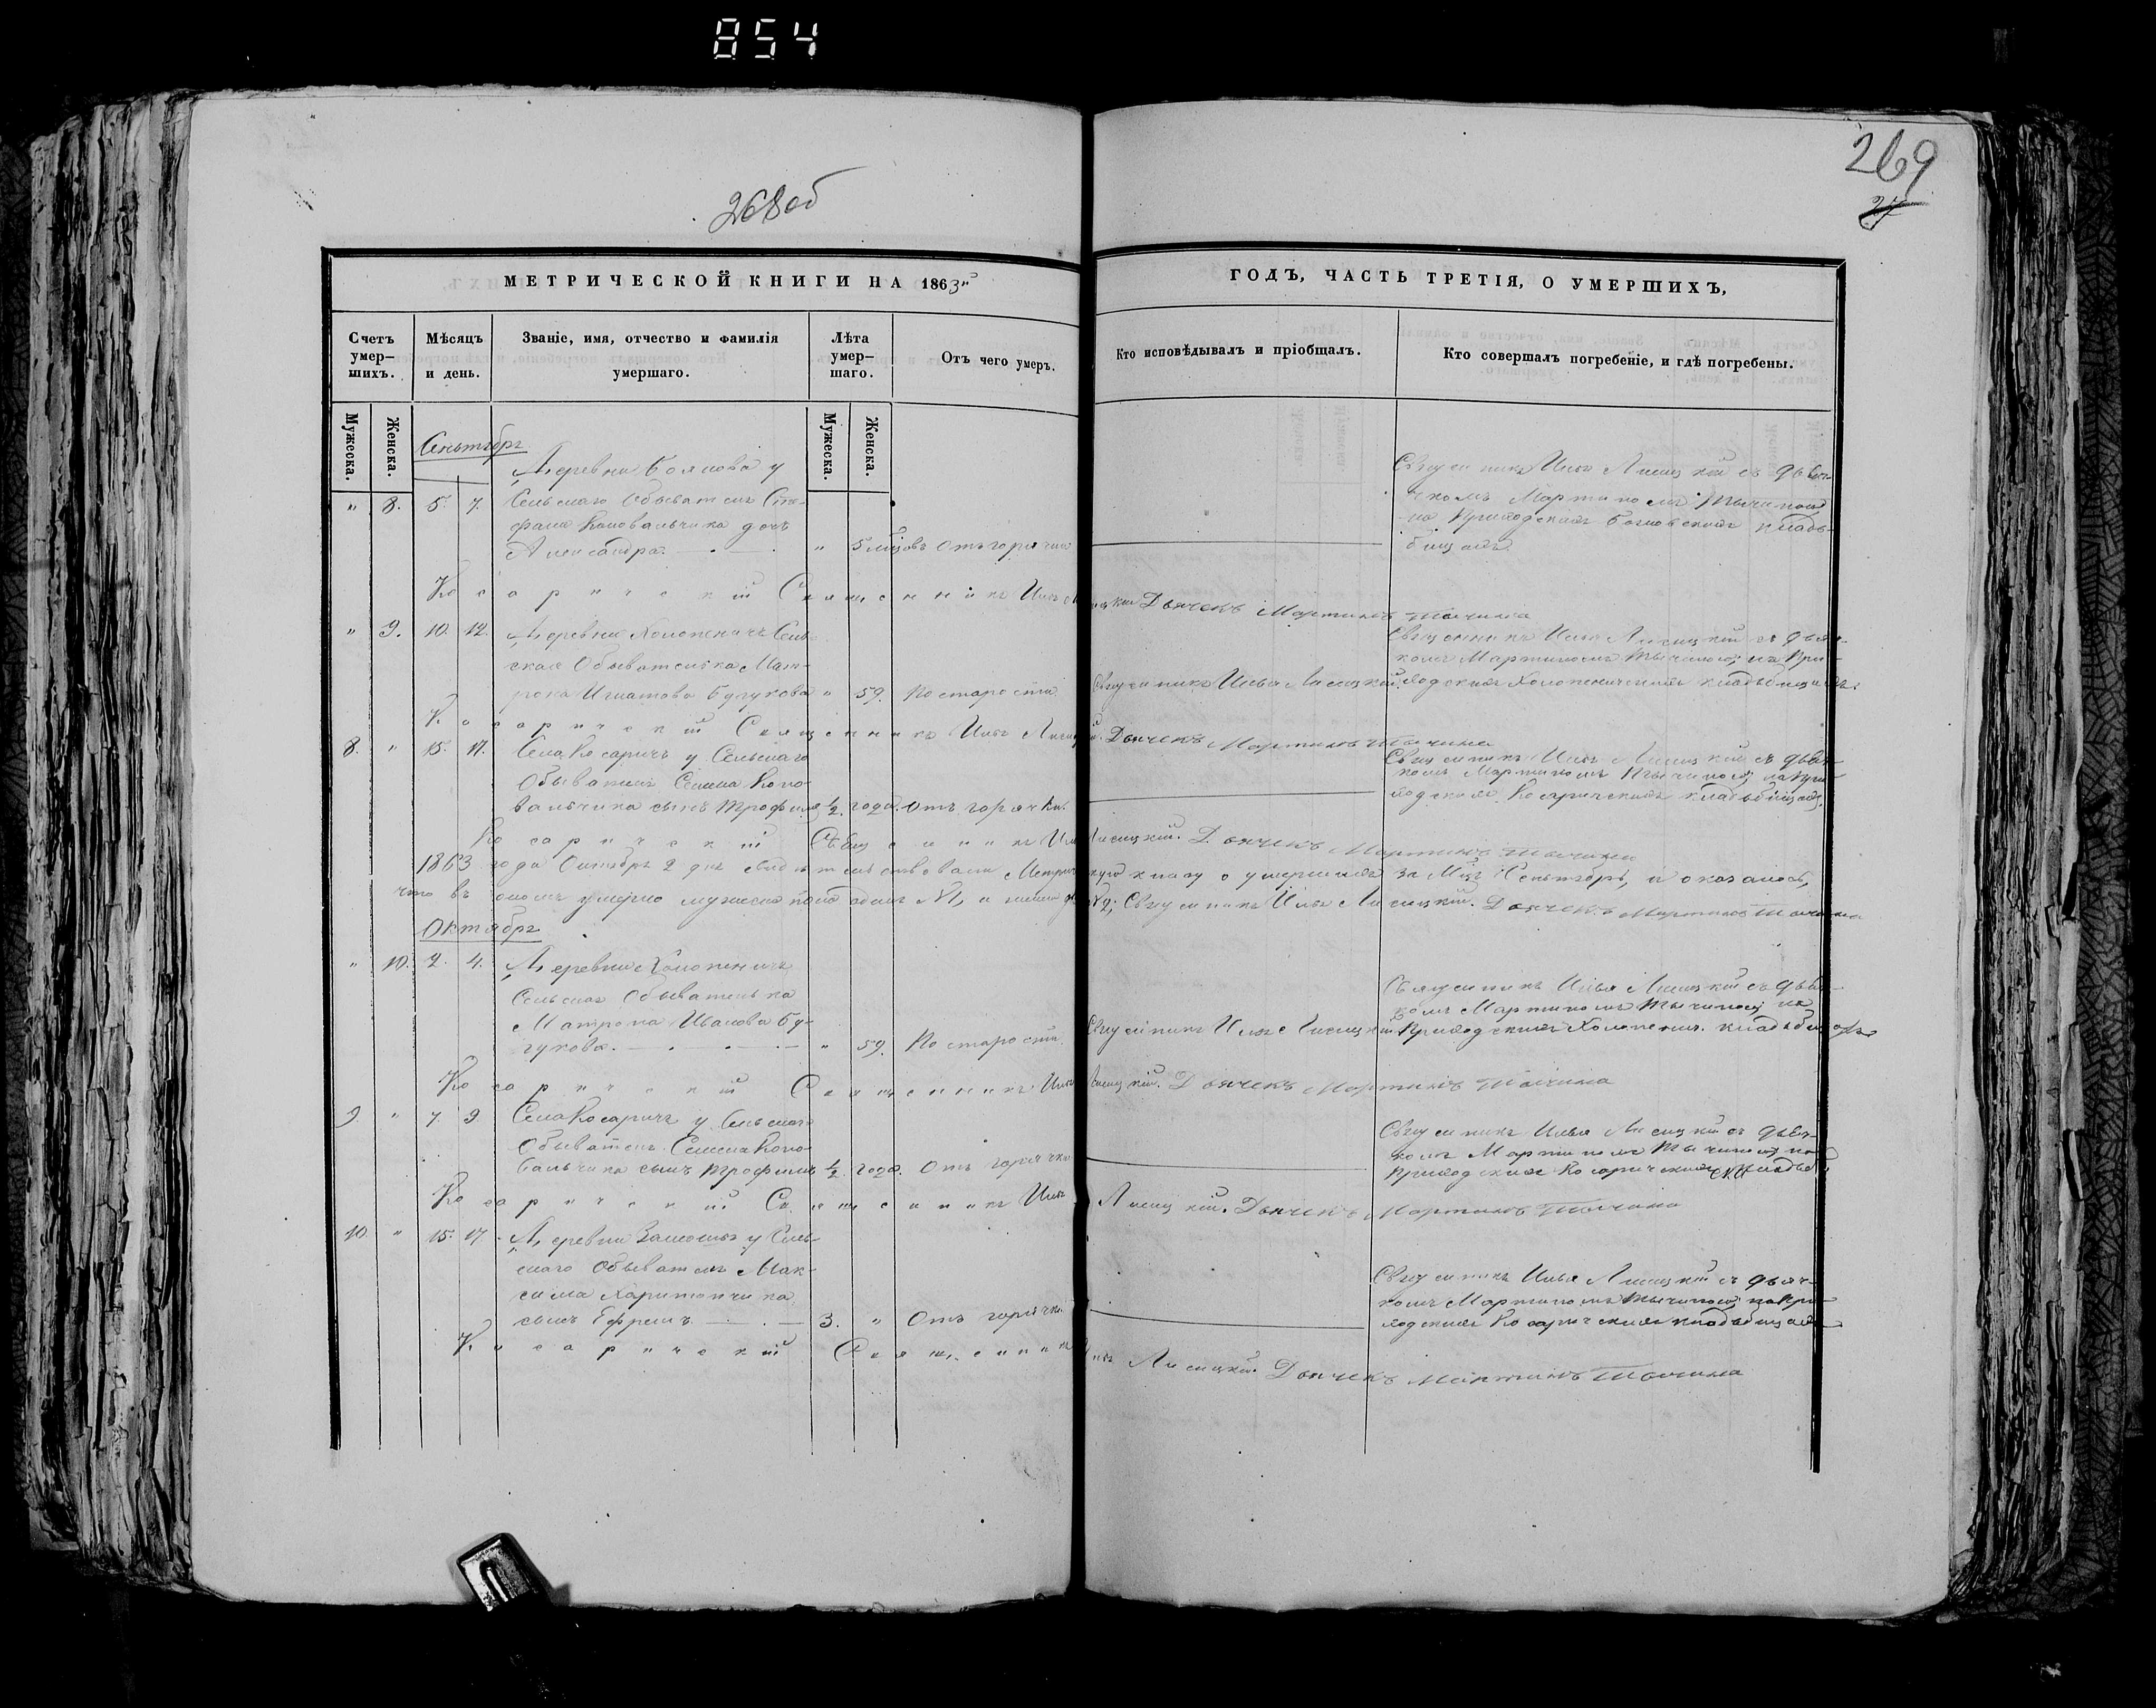 854
268об
269
27
МЕТРИЧЕСКОЙ КНИГИ НА 1863й
ГОДЪ, ЧАСТЬ ТРЕТІЯ, О УМЕРШИХЪ,
Счетъ умер-шихъ.
Мѣсяцъ и день.
Званіе, имя, отчество и фамилія умершаго.
Лѣта умер-шаго.
Отъ чего умеръ.
Кто исповѣдывалъ и пріобщалъ.
Кто совершалъ погребеніе, и гдѣ погребены.
Мужеска.
Женска.
Мужеска.
Женска.
Сентябрь
Деревни у
" 8. 5. 7. Сельскаго Обывателя Сте-
фана Коновальчика дочь
Александра. " 5 мѣцовъ Отъ горячки
Священникъ Илья Лисицкій съ дьяч-
комъ Мартиномъ Тычиною
на Приходскихъ кладь-
бищахъ.
Косаричскій Священникъ Илья Лисицкій Дьячекъ Мартинъ Тычина
" 9. 10. 12. Деревни Холопеничъ Сель-
ская Обывателька Мат-
рона Игнатова " 59. По старости
Священникъ Илья Лисицкій.
Священникъ Илья Лисицкій съ дьяч-
комъ Мартиномъ Тычиною, на При-
ходскихъ Холопеничскихъ кладьбищахъ
Косаричскій Священникъ Илья Лисицкій. Дьячекъ Мартинъ Тычина
8. " 15. 17. Села Косаричъ у Сельскаго
Обывателя Семена Коно-
вальчика сынъ Трофимъ 1/2 года. Отъ горячки.
Священникъ Илья Лисицкій съ дьяч-
комъ Мартиномъ Тычиною, на При-
ходскихъ Косаричскихъ кладьбищахъ.
Косаричскій Священникъ Илья Лисицкій. Дьячекъ Мартинъ Тычина
1863 года Октября 2 дня свидѣтельствовали Метрическую книгу о умершихъ за Мцъ Сентябрь, и оказалось,
что въ ономъ умерло мужеска пола одинъ №1, а женска два №2; Священникъ Илья Лисицкій. Дьячекъ Мартинъ Тычина
Октябрь
" 10. 2. 4. Деревни Холопеничъ
Сельская Обывателька
Матрона Иванова
" 59. По старости.
Священникъ Илья Лисицкій
Священникъ Илья Лисицкій съ дьяч-
комъ Мартиномъ Тычиною, на
Приходскихъ Холопенич. кладьбищахъ
Косаричскій Священникъ Илья Лисицкій. Дьячекъ Мартинъ Тычина
9. " 7. 9. Села Косаричъ у Сельскаго
Обывателя Семена Коно-
вальчика сынъ Трофимъ 1/2 года. Отъ горячки
Священникъ Илья Лисицкій съ дьяч-
комъ Мартиномъ Тычиною на
Приходскихъ Косаричскихъ
Косаричскій Священникъ Илья Лисицкій. Дьячекъ Мартинъ Тычина
10. " 15. 17. Деревни у Сель-
скаго Обывателя Мак-
сима Харитончика
сынъ Ефремъ 3. " Отъ горячки
Священникъ Илья Лисицкій съ дьяч-
комъ Мартиномъ Тычиною, на При-
ходскихъ Косаричскихъ кладьбищахъ
Косаричскій Священникъ Илья Лисицкій. Дьячекъ Мартинъ Тычина